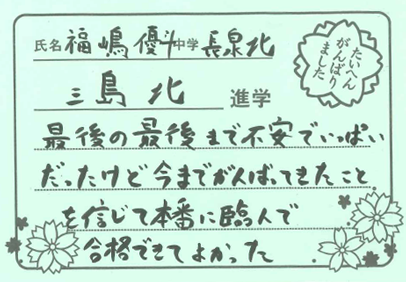 氏名 福嶋 優斗 中学 長泉北
たいへん
がんばり
ました
三島 北 進学
最後の最後まで不安でいっぱい
だったけど今までがんばってきたこと
を信じて本番に臨んで
合格できてよかった